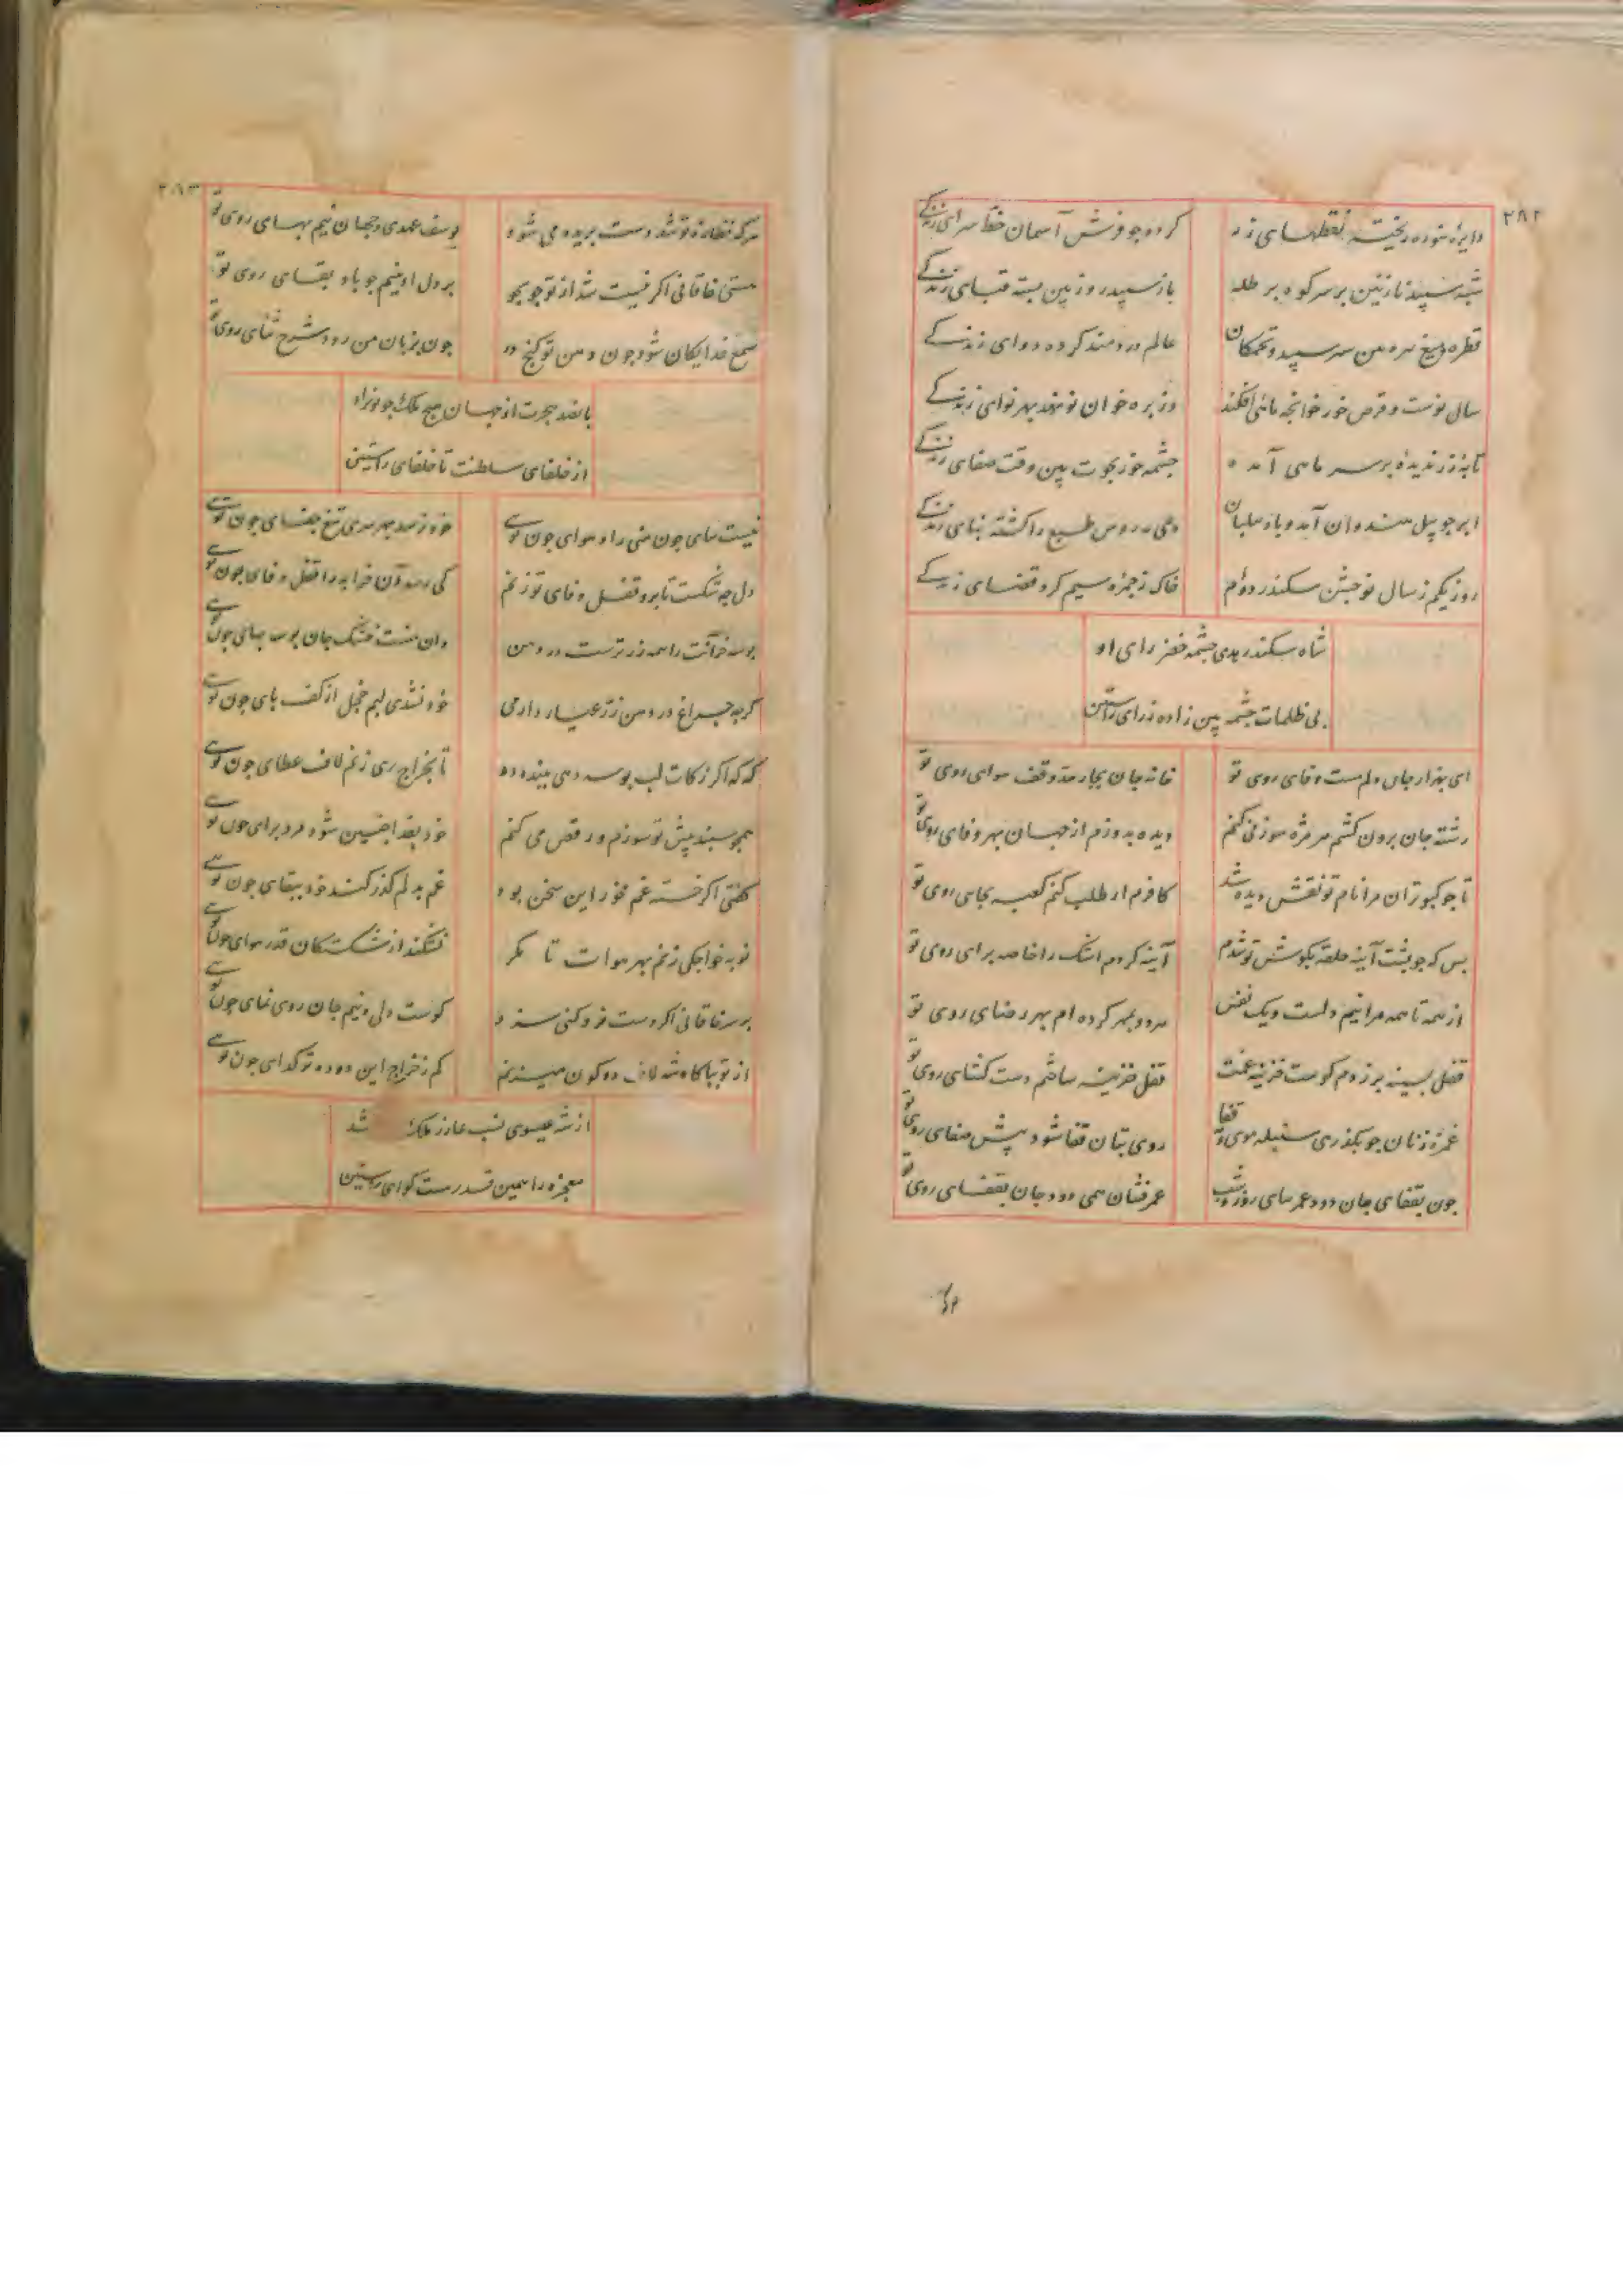 ۲۸۲
دایره سوده ریخته نقطهای زر کرده چو فرش آسمان خط سرای زندکی
شبه سپید نازنین بر سر کوه بر طله باز سپید روز بین بسته قبای زندکی
قطره و میغ تیره بین سر سپید و تخمکان عالم دردمند کرده دوای زندکی
سال نوست و قرص خور خوانچه ماهی افکند وز بره خوان نو نهد بهر نوای زندکی
تابه زر ندیده بر سر ماهی آمده چشمه خور بحوت بین وقت صفای زندکی
ابر چو پیل هندوان آمد و باد پیلبان دیمه روس طبع را کشته بنای زندکی
روز یکم ز سال نو جشن سکندر دوم خاک ز جمره سیم کرد قضای زندکی
شاه سکندر هدی چشمه خضر رای او
بی ظلمات چشمه بین زاده ز رای راستین
ای بهزار جان دلم مست وفای روی تو خانه جان بچار حد وقف هوای روی تو
رشته جان برون کشم هر مژه سوزنی کنم دیده بدوزم از جهان بهر وفای روی تو
تا چو کبوتران مرا نام تو نقش دیده شد کافرم ار طلب کنم کعبه بجای روی تو
بس که چو پشت آینه حلقه بکوش تو شدم آینه کردم اشک را خاصه برای روی تو
از همه تا همه مرا نیم دلست و یک نفس هردو بمهر کرده ام بهر رضای روی تو
قفل بسینه بر زدم کوست خزینه غمت قفل خزینه ساختم دست کشای روی تو
غمزه زنان چو بکذری سنبله موی و مه قفا روی بتان قفا شود پیش صفای روی تو
چون بقفای جان دود عمر سای روز و شب عمر فشان همی دود جان بقفای روی تو
۲۸۳
هرکه نظاره تو شد دست بریده می شود یوسف عهدی و جهان نیم بهای روی تو
هستی خاقانی اکر نیست شد از تو جو بجو بر دل او بنیم جو باد بقای روی تو
سمع خدایکان شود چون دهن تو کنج در چون بزبان من رود شرح ثنای روی تو
بامد هجرت از جهان هیچ ملک چو نوزاد
از خلفای سلطنت تا خلفای راستین
نیست بپای چون منی راه هوای چون توی خود نرسد بهر سری تیغ جفای چون توی
دل چه سکست تا برو قفل وفای تو زنم کی رسد آن خرابه را قفل وفای چون توی
بوسه خرانت را همه زر ترست در دهن وان منست خشک جان بوسه بهای چون توی
کرنه چراغ در دهن زر عیار دارمی خود نشدی لبم خجل از کف پای چون توی
که که اکر زکات لب بوسه دهی ببنده ده تا بخراج ری زنم لاف عطای چون توی
همچو سپند پیش تو سوزم و رقص می کنم خود بفدا چنین شود مرد برای چون توی
کفتی اکر خسته غم مخور این سخن بود غم بدلم کذر کند خود ببقای چون توی
نوبه خواجکی زنم بهر هوات تا مکر نشکند از شکستکان قدر هوای چون توی
بر سر خاقانی اکر دست فرو کنی سزد کوست دلی و نیم جان روی نمای چون توی
از تو ببارکاه شه لاف دو کون میزنم کم ز خراج این دو ده تو کدای چون توی
از شه عیسوی نسب عازر ملک شد
معجزه را همین قدر هست کوای راستین